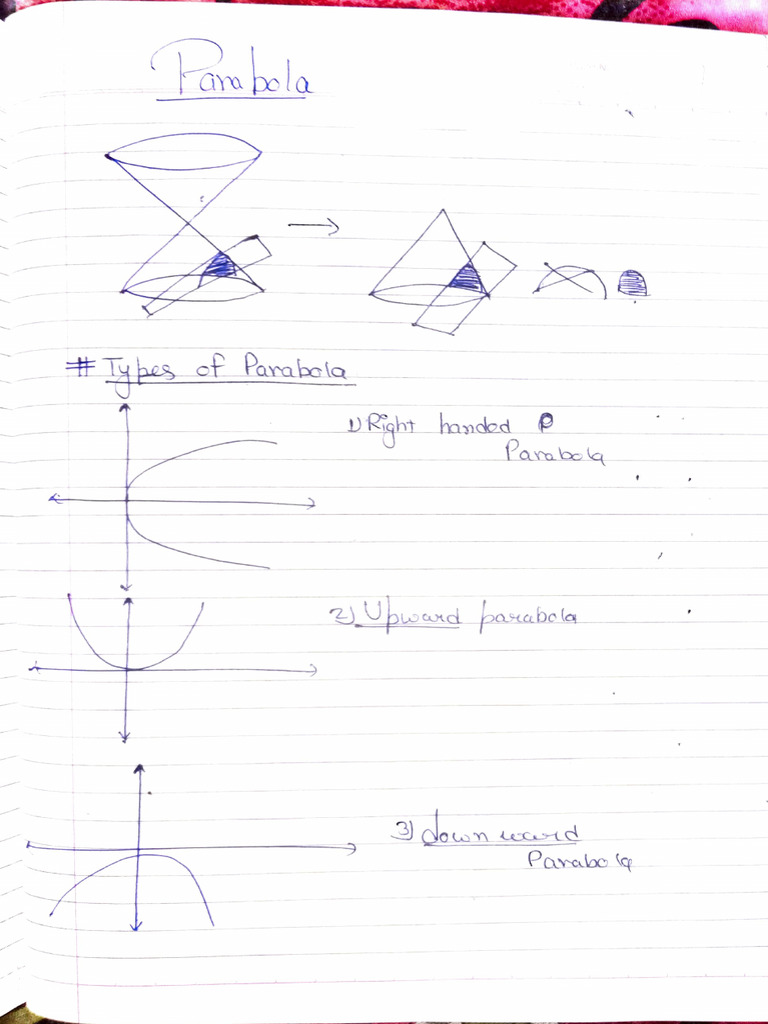 Parabola
# Types of Parabola
1) Right handed P
Parabola
2) Upward parabola
3) downward
Parabola